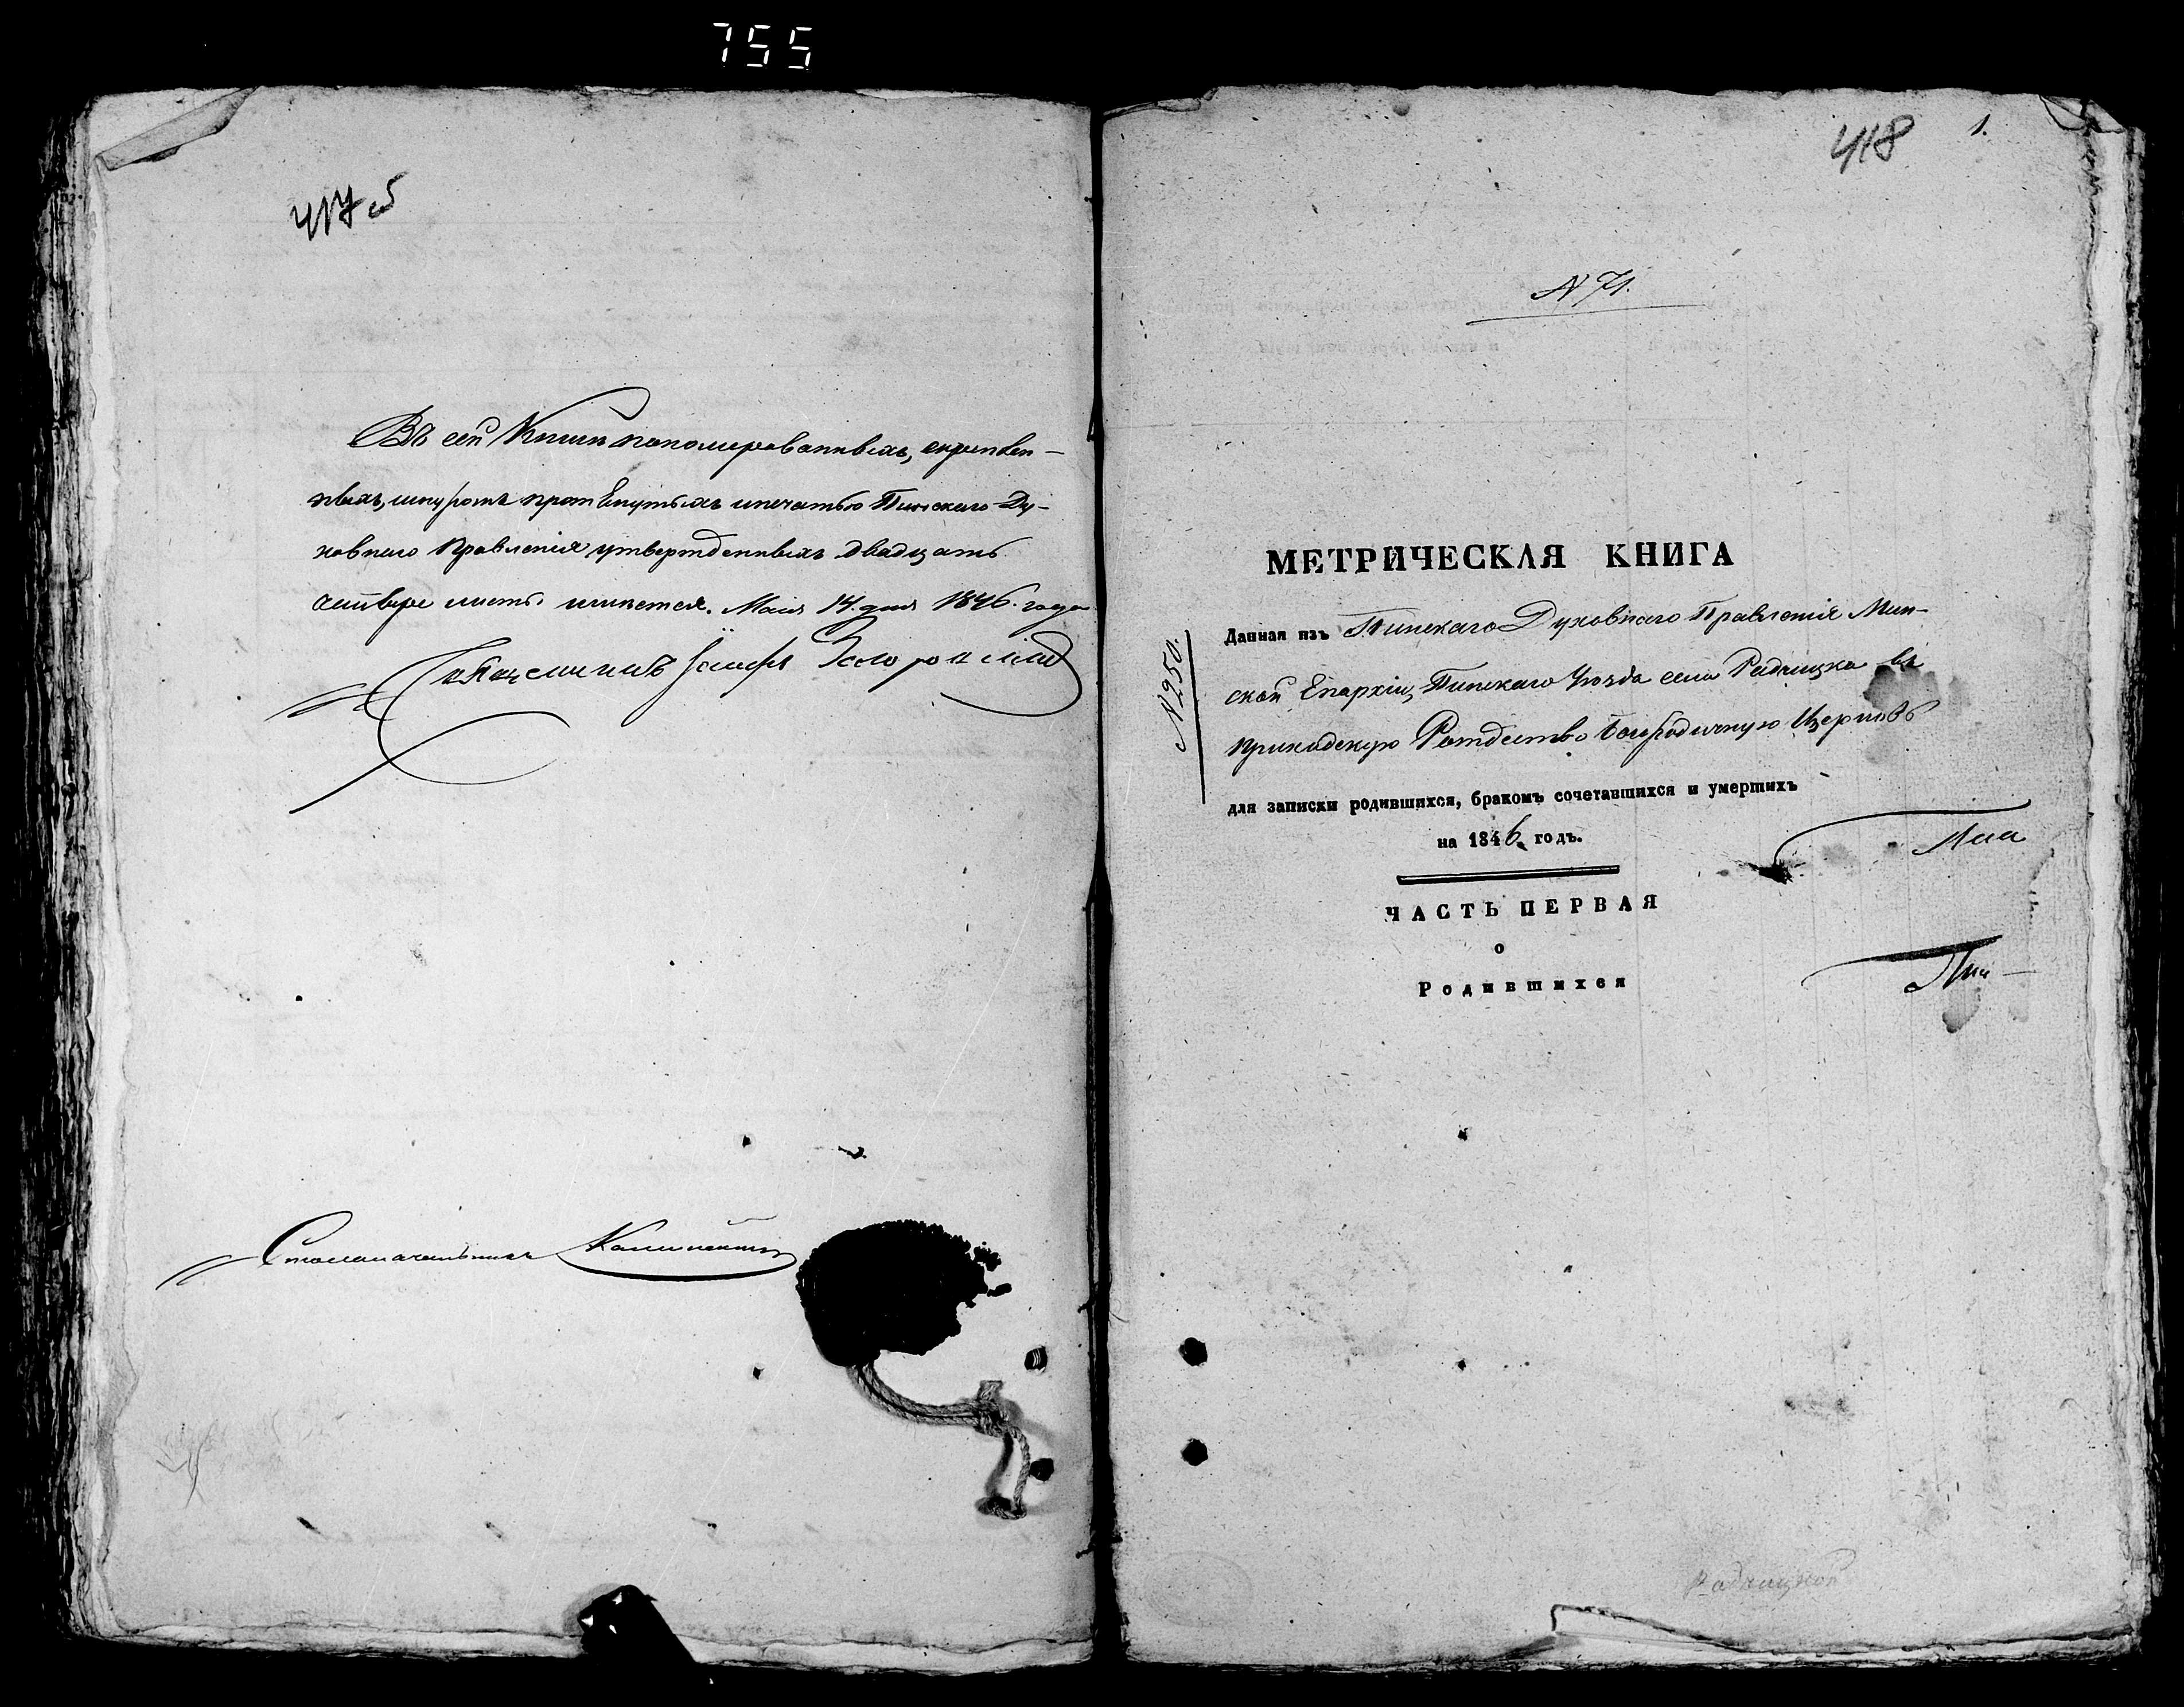 755
417 об
Въ сей Книги пономерованныхъ, скрѣплен-
ныхъ, шнуромъ протянутыхъ и печатью Пинскаго Ду-
ховнаго Правленія утвержденныхъ двадцать
четыре листы имѣется. Маія 14. дня 1846. года
Іосифъ
Столоначальникъ
418 1.
N 71.
N 250.
МЕТРИЧЕСКАЯ КНИГА
Данная изъ Пинскаго Духовнаго Правленія Мин-
ской Епархіи, Пинскаго Уѣзда села Радчицка въ
приходскую Рождество Богородичную Церковь
для записки родившихся, бракомъ сочетавшихся и умершихъ
на 1846. годъ.
ЧАСТЬ ПЕРВАЯ
о
Родившихся
Радчицкой